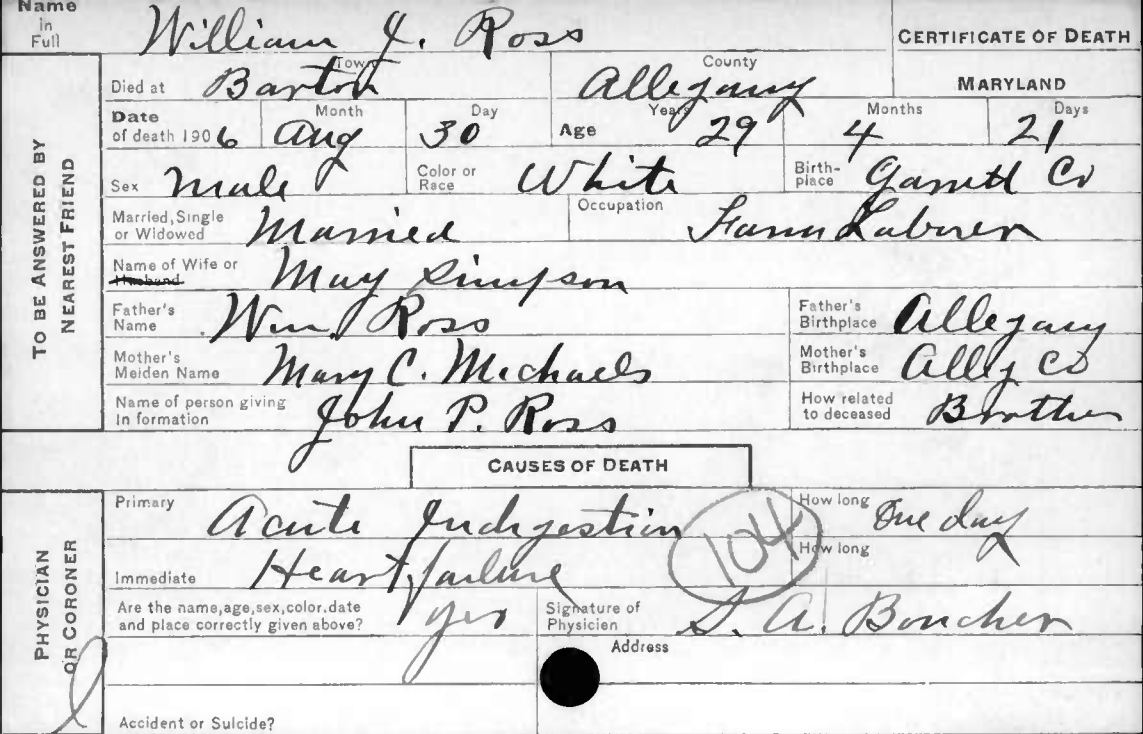 Name in Full William J. Ross CERTIFICATE OF DEATH
Died at Barton Town Allegany County MARYLAND
Date of death 1906 Month Aug Day 30 Age Years 29 Months 4 Days 21
Sex Male Color or Race White Birth-place Garrett Co
Married, Single or Widowed Married Occupation Farm Laborer
Name of Wife or Husband May Simpson
Father's Name Wm. Ross Father's Birthplace Allegany
Mother's Meiden Name Mary C. Michaels Mother's Birthplace Alleg Co
Name of person giving In formation John P. Ross How related to deceased Brother
TO BE ANSWERED BY NEAREST FRIEND
CAUSES OF DEATH
Primary Acute Indigestion 104 How long One day
Immediate Heart failure How long
Are the name, age, sex, color, date and place correctly given above? yes Signature of Physician S. A. Boucher
Address
Accident or Suicide?
PHYSICIAN OR CORONER